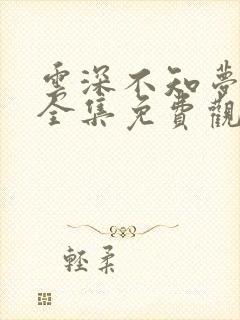 雲深不知夢
全集免費觀
輕柔